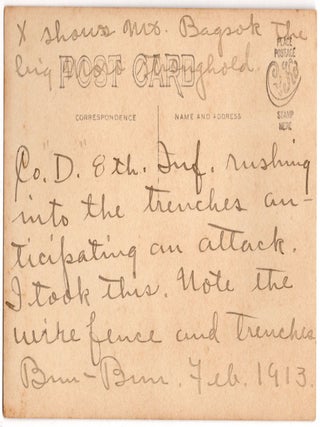 X shows Mt. Bagsok The
big Moro stronghold.
POST CARD
PLACE
POSTAGE
STAMP
HERE
CORRESPONDENCE
NAME AND ADDRESS
Co. D. 8th. Inf. rushing
into the trenches an-
ticipating an attack.
I took this. Note the
wire fence and trenches
Bun-Bun. Feb. 1913.